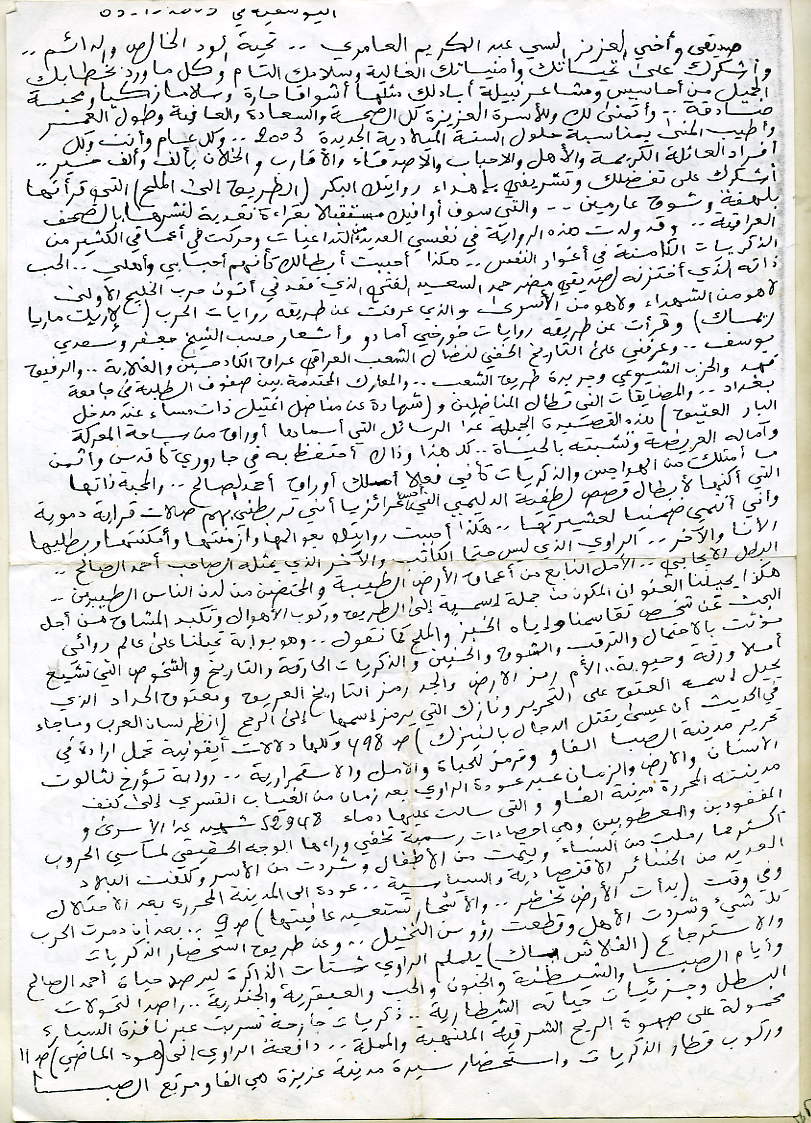 اليوسفية في
صديقي وأخي العزيز السي عبد الكريم العامري .. تحية الود الخالص والدائم ..
وأشكرك على تحياتك وأمنياتك الغالية وسلامك التام وكل ما ورد بخطابك
الجميل من أحاسيس ومشاعر نبيلة أبادلك مثلها أشواقا حارة وسلاما زكيا ومحبة
صادقة .. وأتمنى لك وللأسرة العزيزة كل الصحة والسعادة والعافية وطول العمر
وأطيب المنى بمناسبة حلول السنة الميلادية الجديدة 2003 .. وكل عام وأنت وكل
أفراد العائلة الكريمة والأهل والأحباب والأصدقاء والأقارب والخلان بألف وألف خير ..
أشكرك على تفضلك وتشريفي بإهداء روايتك البكر (الطريق إلى الملح) التي قرأتها
بلهفة وشوق عارمين .. والتي سوف أوافيك مستقبلا بقراءة نقدية لنشرها بالصحف
العراقية .. وقد ولدت هذه الرواية في نفسي العديد من التداعيات وحركت في أعماقي الكثير من
الذكريات الكامنة في أغوار النفس .. هكذا أحببت أبطالك كأنهم أحبابي وأهلي .. الحب
ذاته الذي أختزنه لصديقي مضر حمد السعيد الفتي الذي فقد في أتون حرب الخليج الأولى
لا هو من الشهداء ولا هو من الأسرى والذي عرفت عن طريقه روايات الحرب (لإريك ماريا
ريماك) وقرأت عن طريقه روايات خورخي أمادو وأشعار حسب الشيخ جعفر وسعدي
يوسف .. وعرفني على التاريخ الخفي لنضال الشعب العراقي عراق الكادحين والغلابة .. والرفيق
فهد والحزب الشيوعي وجريدة طريق الشعب .. والمعارك المحتدمة بين صفوف الطلبة في جامعة
بغداد .. والمضايقات التي تطال المناضلين و(شهادة عن مناضل اغتيل ذات مساء عند مدخل
البار العتيق) هذه القصيدة الجميلة عدا الرسائل التي أسماها أوراق من ساحة المعركة
وآماله العريضة وتشبته بالحياة .. كل هذا وذاك أحتفظ به في جاروري كأقدس وأثمن
ما أمتلك من الهواجس والذكريات كأني فعلا أمتلك أوراق أحمد الصالح .. والمحبة ذاتها
التي أكنها لأبطال قصص لطفية الدليمي التي غرائزيا أنني تربطني بهم صلات قرابة دموية
وأني أنتمي ضمنيا لعشيرتها .. هكذا أحببت روايتك بعوالمها وأزمنتها وأمكنتها وبطليها
الأنا والآخر .. الراوي الذي ليس حتما الكاتب والآخر الذي يمثله الصاحب أحمد الصالح ..
البطل الإيجابي .. الأمل النابع من أعماق الأرض الطيبة والمختصين من لدن الناس الطيبين ..
هكذا يحيلنا العنوان المكون من جملة إسمية إلى الطريق وركوب الأهوال وتكبد المشاق من أجل
البحث عن شخص تقاسمنا وإياه الخبز والملح كما نقول .. وهو بوابة تحيلنا على عالم روائي
مؤثث بالاحتمال والترقب والشوق والحنين والذكريات الحارقة والتاريخ والشخوص التي تشيع
أملا ورقة وحيوية .. الأم رمز الأرض والجد رمز التاريخ العريق ومعتوق الحداد الذي
يحيل اسمه العتوق على التحرير ونازك التي يرمز اسمها إلى الرمح (انظر لسان العرب وما جاء
في الحديث أن عيسى يقتل الدجال بالنيزك) ص 498 وكلها دلالات أيقونية تحمل إرادة في
تحرير مدينة الصبا الفاو وترمز للحياة والأمل والاستمرارية .. رواية تؤرخ لثالوت
الإنسان والأرض والزمان عبر عودة الراوي بعد زمان من الغياب القسري إلى كنف
مدينته المحررة مدينة الفاو والتي سالت عليها دماء 52948 شهيد عدا الأسرى و
المفقودين والمعطوبين وهي إحصاءات رسمية تخفي وراءها الوجه الحقيقي لمآسي الحروب
أكثرها رملت من النساء ويتمت من الأطفال وشردت من الأسر وكلفت البلاد
العديد من الخسائر الاقتصادية والسياسية .. عودة إلى المدينة المحررة بعد الاحتلال
وفي وقت (بدأت الأرض تخضر .. والأشجار تستعيد عافيتها) ص 9 .. بعد أن دمرت الحرب
كل شيء وشردت الأهل وقطعت رؤوس النخيل .. وعن طريق استحضار الذكريات
والاسترجاع (الفلاش باك) يلملم الراوي شتات الذاكرة ليرصد حياة أحمد الصالح
وأيام الصبا والشيطنة والجنون والحب والعبقرية والجندية .. راصدا لتحولات
البطل وجزئيات حياته الشطارية .. ذكريات جارحة تسربت عبر نافذة السيارة
محمولة على صهوة الريح الشرقية الملتهبة والمملة .. دافعة الراوي إلى (هوة الماضي) ص 11
وركوب قطار الذكريات واستحضار سيرة مدينة عزيزة هي الفاو مرتع الصبا